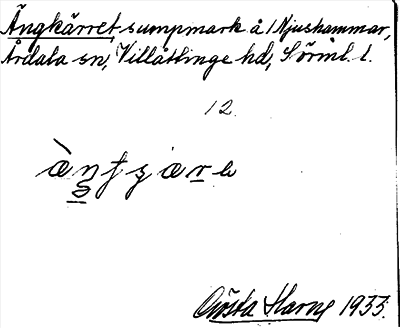 Ängkärret, sumpmark å 1 Njushammar,
Årdala sn, Villåttinge hd, Sörml. l.
12.
Gösta Harne 1933.